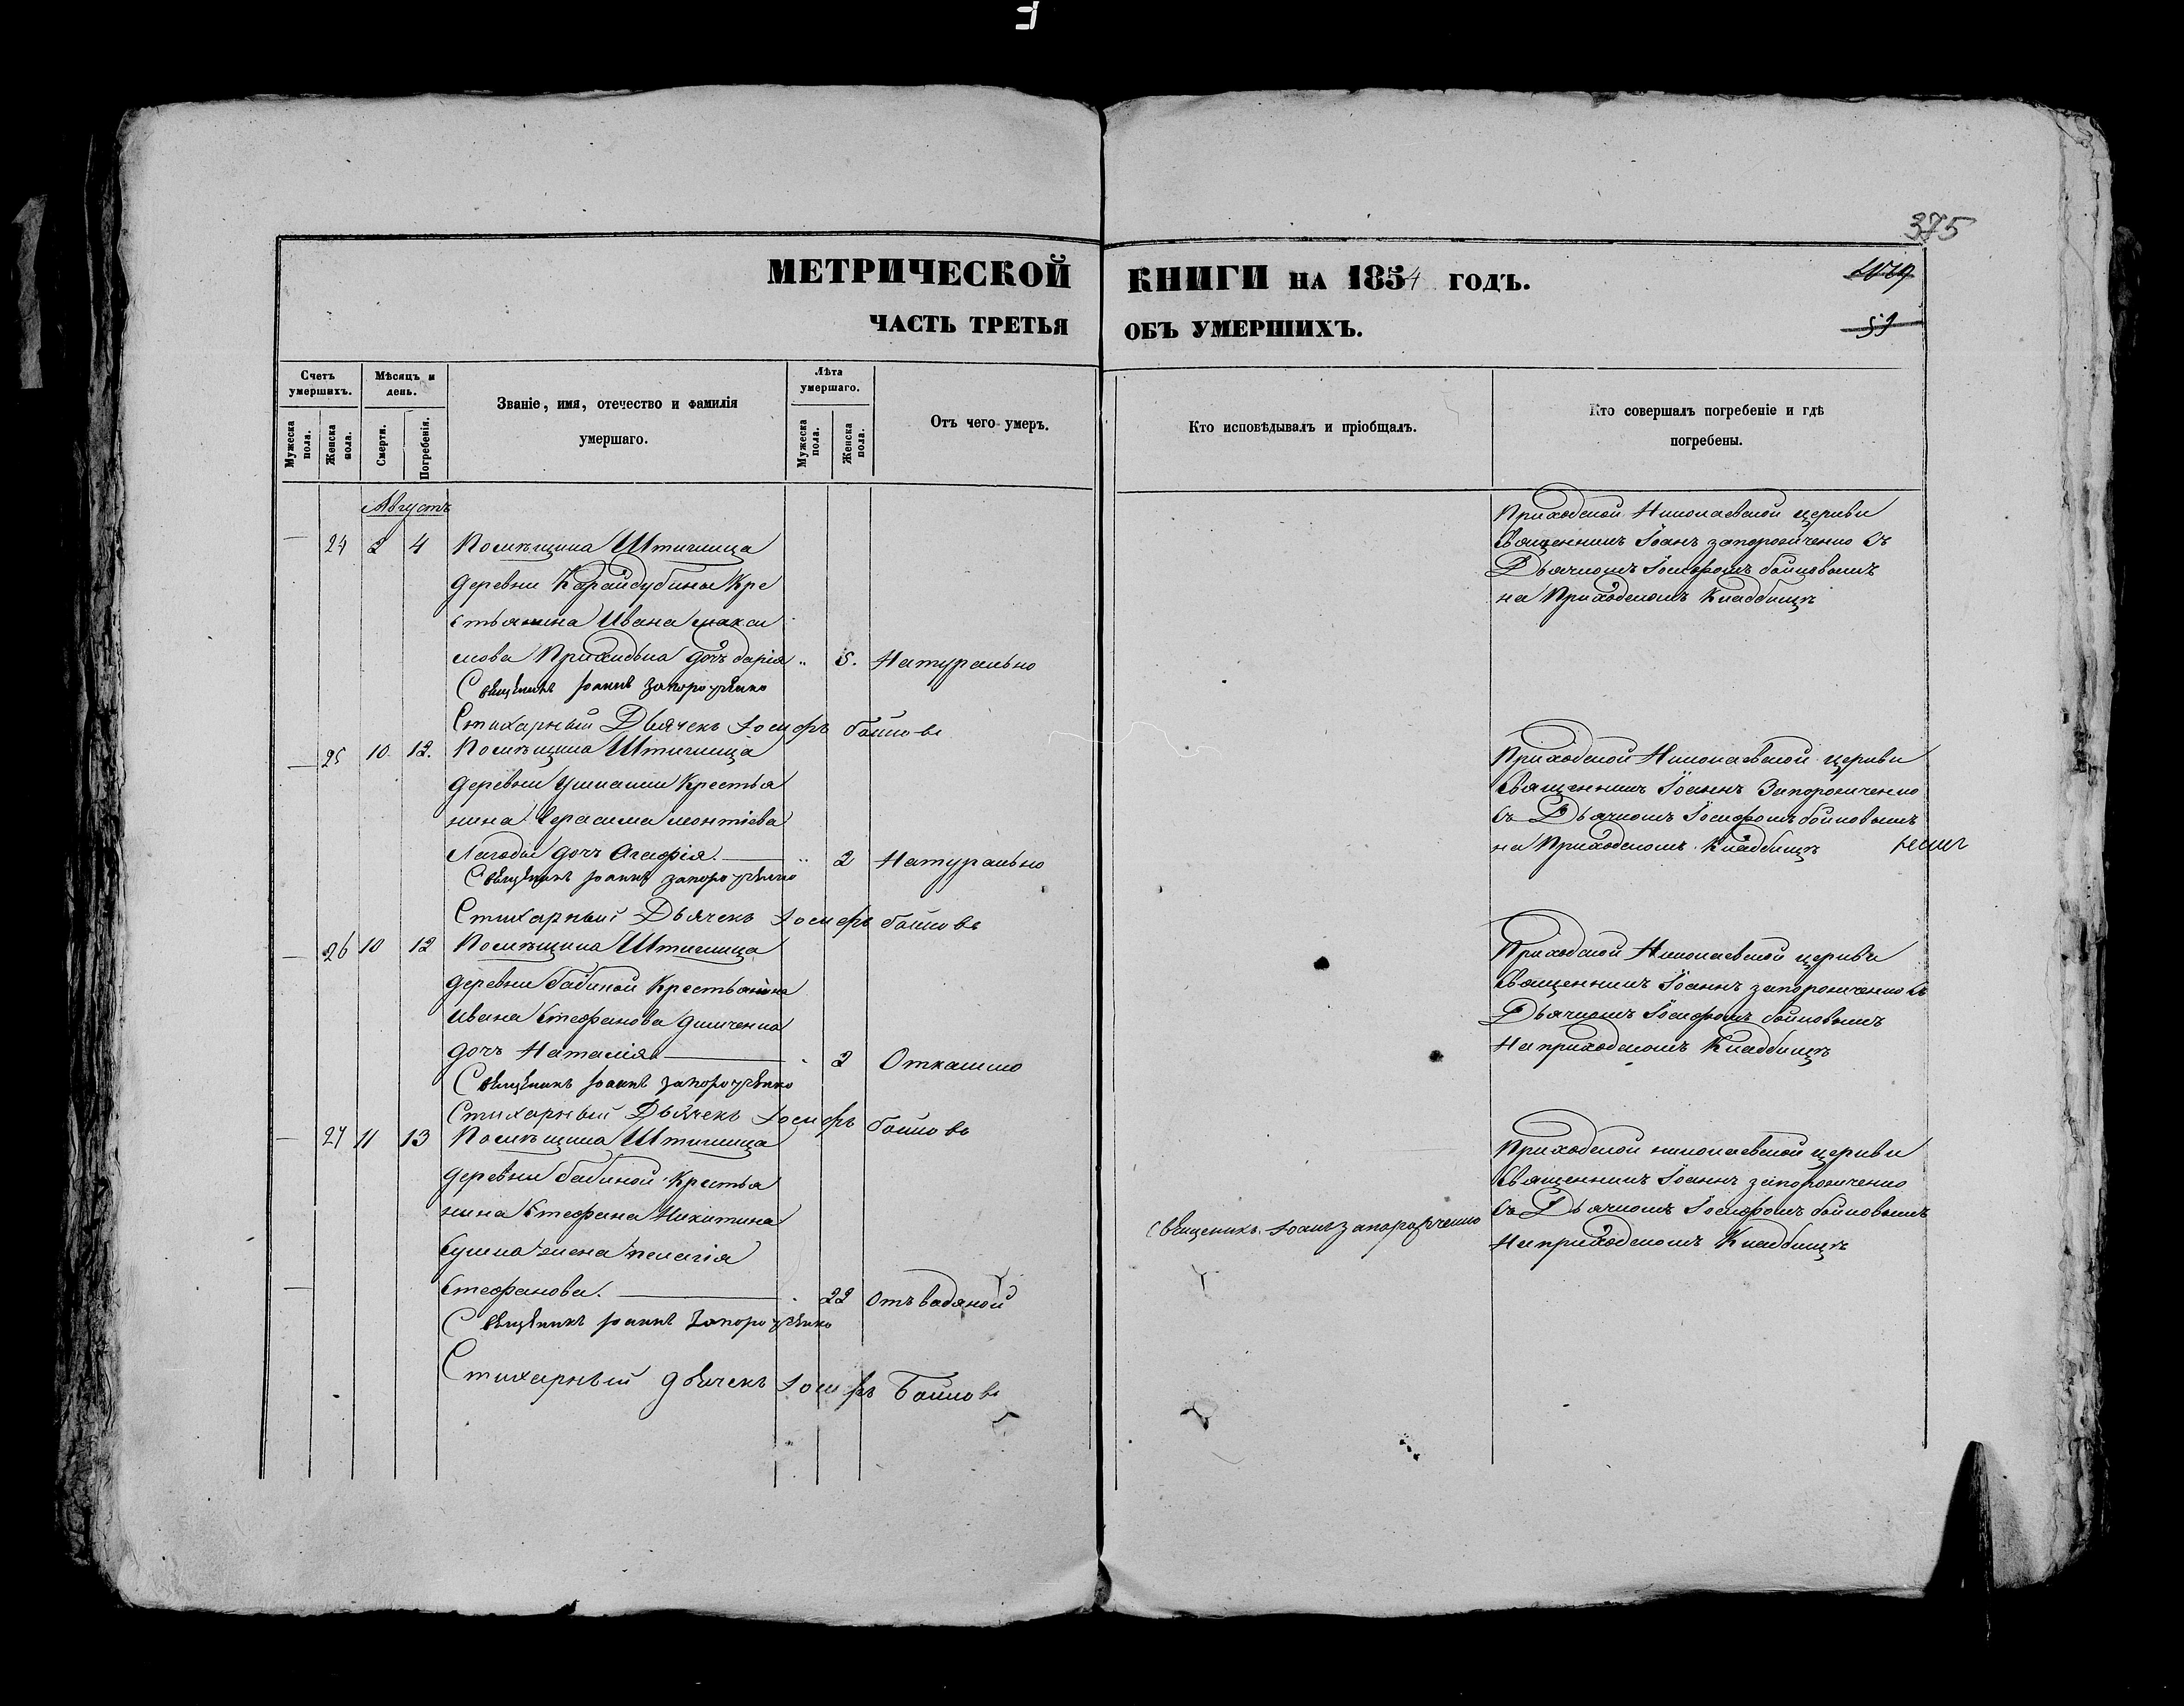 375
МЕТРИЧЕСКОЙ КНИГИ НА 1854 ГОДЪ.
ЧАСТЬ ТРЕТЬЯ ОБЪ УМЕРШИХЪ.
Счетъ умершихъ.
Мужеска пола.
Женска пола.
Мѣсяцъ и день.
Смерти.
Погребенія.
Званіе, имя, отечество и фамилія
умершаго.
Лѣта умершаго.
Мужеска пола.
Женска пола.
Отъ чего умеръ.
Кто исповѣдывалъ и пріобщалъ.
Кто совершалъ погребеніе и гдѣ
погребены.
Августъ
24 2 4 Помѣщика Штиглица
деревни Карайдубины Кре
стьянина Ивана макси
мова Приходька дочъ дарія 5. Натурально
Священикъ Іоаннъ Запорожченко
Стихарный Дьячекъ Іосифъ бойковъ
Приходской Николаевской церкви
Священникъ Іоанъ запорожченко Съ
Дьячкомъ Іосифомъ бойковымъ
на Приходскомъ Кладбищѣ
25 10 12. Помѣщика Штиглица
деревни Крестья
нина Герасима леонтіева
Лагоды дочъ Агафія. 2 Натурально
Священикъ Іоаннъ запорожченко
Стихарный Дьячекъ Іосифъ бойковъ
Приходской Николаевской церкви
Священникъ Іоаннъ Запорожченко
Съ Дьячкомъ Іосифомъ бойковымъ
на Приходскомъ Кладбищѣ
26 10 12 Помѣщика Штиглица
деревни бабиной Крестьянина
Ивана Стефанова
дочъ Наталія 2 Откашлю
Священикъ Іоаннъ запорожченко
Стихарный Дьячекъ Іосифъ бойковъ
Приходской Николаевской церкви
Священникъ Іоаннъ запорожченко Съ
Дьячкомъ Іосифомъ бойковымъ
На приходскомъ Кладбищѣ
27 11 13 Помѣщика Штиглица
деревни бабиной Крестья
нина Стефана Никитина
жена пелагія
Стефанова. 22 Отъ вадяной
Священикъ Іоаннъ Запорожченко
Стихарный дьячекъ Іосифъ Бойковъ
Священикъ Іоанъ запорожченко
Приходской николаевской церкви
Священникъ Іоаннъ запорожченко
Съ Дьячкомъ Іосифомъ бойковымъ
На приходскомъ Кладбищѣ